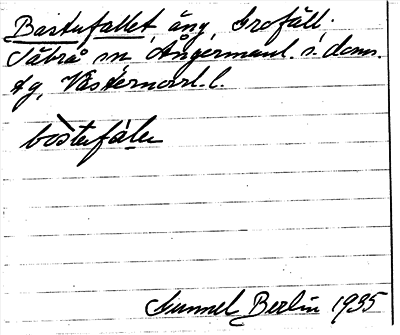 Bastufallet, äng, Grofäll,
Säbrå sn Ångermanl. s. doms.
tg, Västernorrl. l.
bòstufáler
Gunnel Berlin 1935